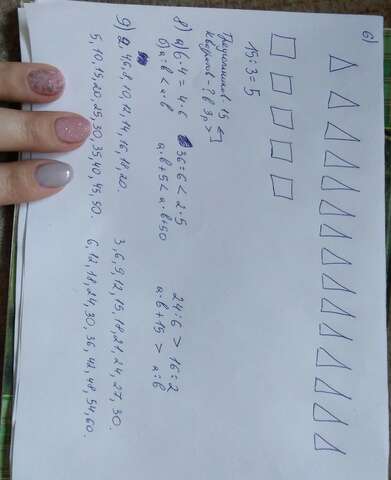 6)
15:3=5
Треугольников 15
Квадратов - ? в 3 р >
8) а) 6·4=4·6 36:6<2·5 24:6 > 16:2
б) а:в<а·в а·в+5<а·в+50 а·в+15 > а:в
9) 2,4,6,8,10,12,14,16,18,20. 3,6,9,12,15,18,21,24,27,30.
5,10,15,20,25,30,35,40,45,50. 6,12,18,24,30,36,42,48,54,60.